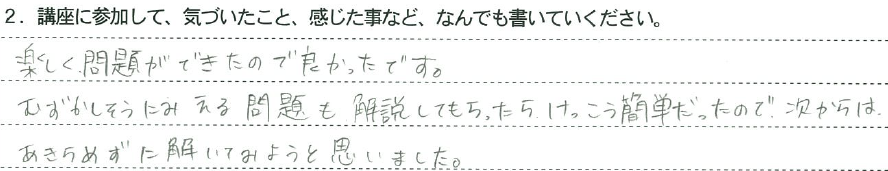 2．講座に参加して、気づいたこと、感じた事など、なんでも書いていください。
楽しく問題ができたので良かったです。
むずかしそうにみえる問題も解説してもらったら、けっこう簡単だったので、次からは、
あきらめずに解いてみようと思いました。